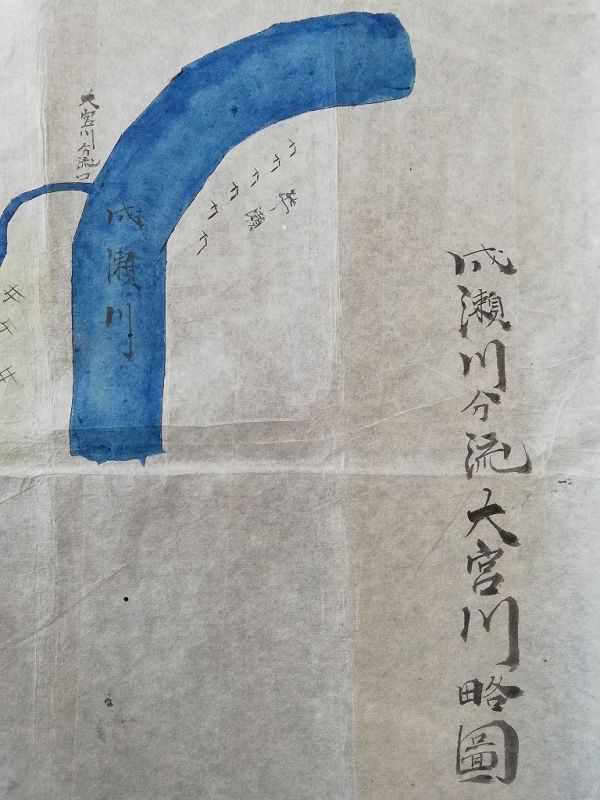 成瀬川分流大宮川略圖
成瀬川
大宮川分流口